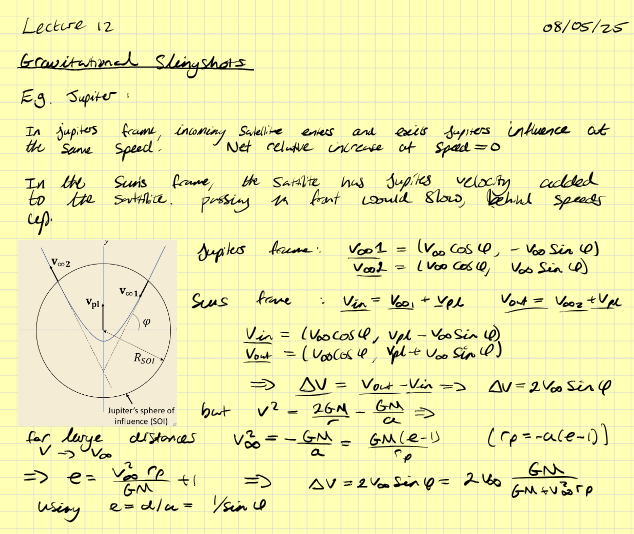 Lecture 12
08/05/25
Gravitational Slingshots
E.g. Jupiter:
In jupiters frame, incoming satellite enters and exits Jupiters influence at
the same speed. Net relative increase at speed = 0
In the suns frame, the satellite has Jupiters velocity added
to the satellite. passing in front would slow, behind speeds
up.
Jupiters frame: V∞1 = (V∞ cos φ, - V∞ sin φ)
V∞2 = (V∞ cos φ, V∞ sin φ)
Suns frame : Vin = V∞1 + Vpl Vout = V∞2 + Vpl
Vin = (V∞ cos φ, Vpl - V∞ sin φ)
Vout = (V∞ cos φ, Vpl + V∞ sin φ)
=> ΔV = Vout - Vin => ΔV = 2V∞ sin φ
y
v∞2
v∞1
vpl
φ
RSOI
Jupiter's sphere of
influence (SOI)
but V² = 2GM/r - GM/a =>
for large distances V∞² = -GM/a = GM(e-1)/rp (rp = -a(e-1))
V → V∞
=> e = V∞² rp/GM + 1 => ΔV = 2V∞ sin φ = 2V∞ GM/(GM + V∞² rp)
using e = d/a = 1/sin φ